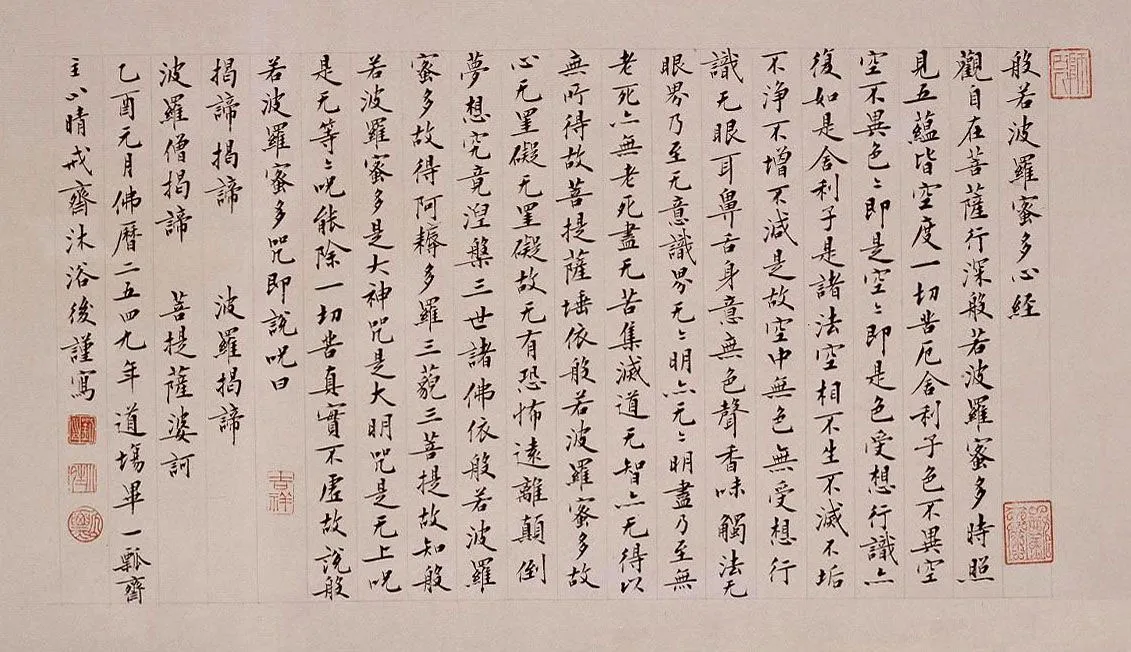 般若波羅蜜多心経
觀自在菩薩行深般若波羅蜜多時照
見五蘊皆空度一切苦厄舍利子色不異空
空不異色〻即是空〻即是色受想行識亦
復如是舍利子是諸法空相不生不滅不垢
不浄不增不減是故空中無色無受想行
識无眼耳鼻舌身意無色聲香味觸法无
眼界乃至无意識界无〻明亦无〻明盡乃至無
老死亦無老死盡无苦集滅道无智亦无得以
無所得故菩提薩埵依般若波羅蜜多故
心无罣礙无罣礙故无有恐怖遠離顛倒
夢想究竟涅槃三世諸佛依般若波羅
蜜多故得阿耨多羅三藐三菩提故知般
若波羅蜜多是大神咒是大明咒是无上呪
是无等〻呪能除一切苦真實不虛故說般
若波羅蜜多咒即說呪曰
揭諦揭諦 波羅揭諦
波羅僧揭諦 菩提薩婆訶
乙酉元月佛曆二五四九年道場畢一瓢齋
主人晴戒齋沐浴後謹寫
吉祥